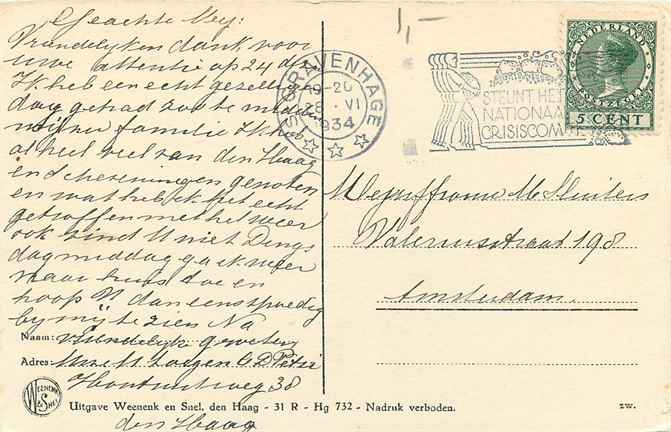 Geachte Mej:
Vriendelijken dank voor
uwe attentie op 24 dzr
Ik heb een echt gezellige
dag gehad zoo te midden
mijner familie Ik heb
al heel veel van den Haag
en Scheveningen genoten
en wat heb ik het echt
getroffen met het weer
ook sinds U niet Dings
dagmiddag ga ik weer
naar huis toe en
hoop U dan eens spoedig
bij mij te zien Na
Naam: vriendelijke groeten
Adres:
Houtrustweg 38
den Haag
Uitgave Weenenk en Snel, den Haag - 31 R - Hg 732 - Nadruk verboden.
zw.
WEENENK & SNEL
1,-
'S GRAVENHAGE
19-20
28 VI
1934
STEUNT HET
NATIONAAL
CRISISCOMITÉ
NEDERLAND
5 CENT
Mejuffrouw M Sluiters
Valeriusstraat 198
Amsterdam.